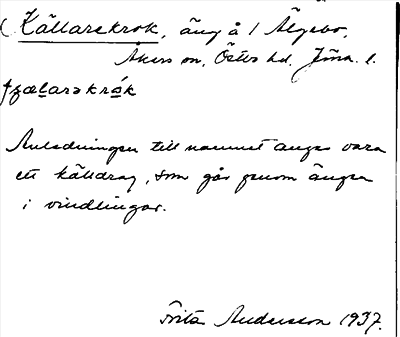 Källarekrok, äng å 1 Älgebo,
Åkers sn, Östbo hd, Jönk. l.
ɟɕælarəkrók
Anledningen till namnet anges vara
ett källdrag, som går genom ängen
i vindlingar.
Frits Andersson 1937.